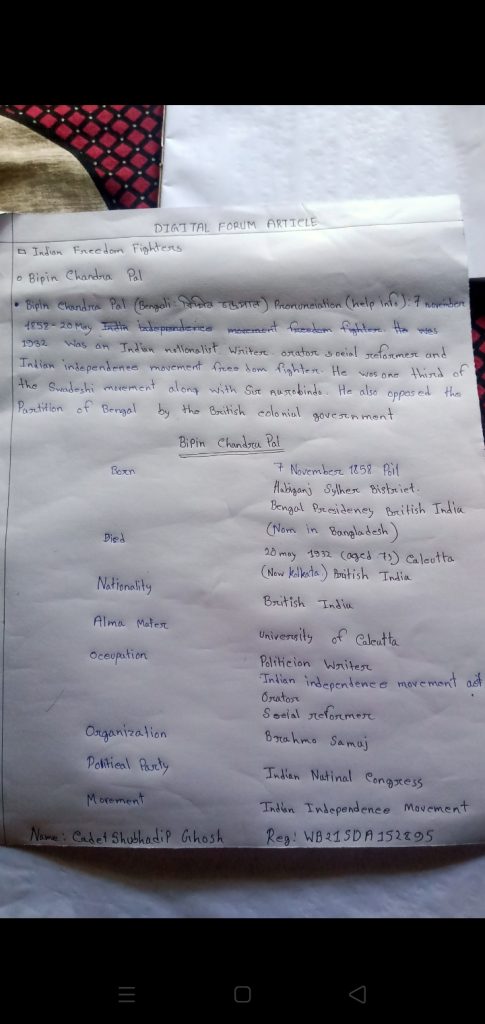 DIGITAL FORUM ARTICLE
Indian Freedom Fighters
Bipin Chandra Pal
Bipin Chandra Pal (Bengali: বিপিন চন্দ্র পাল) Pronunciation (help info): 7 november
1858-20 May India independence movement freedom fighter. He was
1932 Was an Indian nationalist Writer orator social reformer and
Indian independence movement free dom fighter. He was one third of
the Swadeshi movement along with Sir aurobindo. He also opposed the
Partition of Bengal by the British colonial government
Bipin Chandra Pal
Born 7 November 1858 Poil
Habiganj Sylher Bistriet.
Bengal Presidency British India
(Nom in Bangladesh)
Died 20 may 1932 (aged 73) Calcutta
(Now Kolkata) British India
Nationality British India
Alma Mater University of Calcutta
Occupation Politicion Writer
Indian independence movement act
Orator
Social reformer
Organization Brahmo Samaj
Political Party Indian Natinal Congress
Movement Indian Independence Movement
Name: Cadet Shubhadip Ghosh Reg: WB21SDA152895